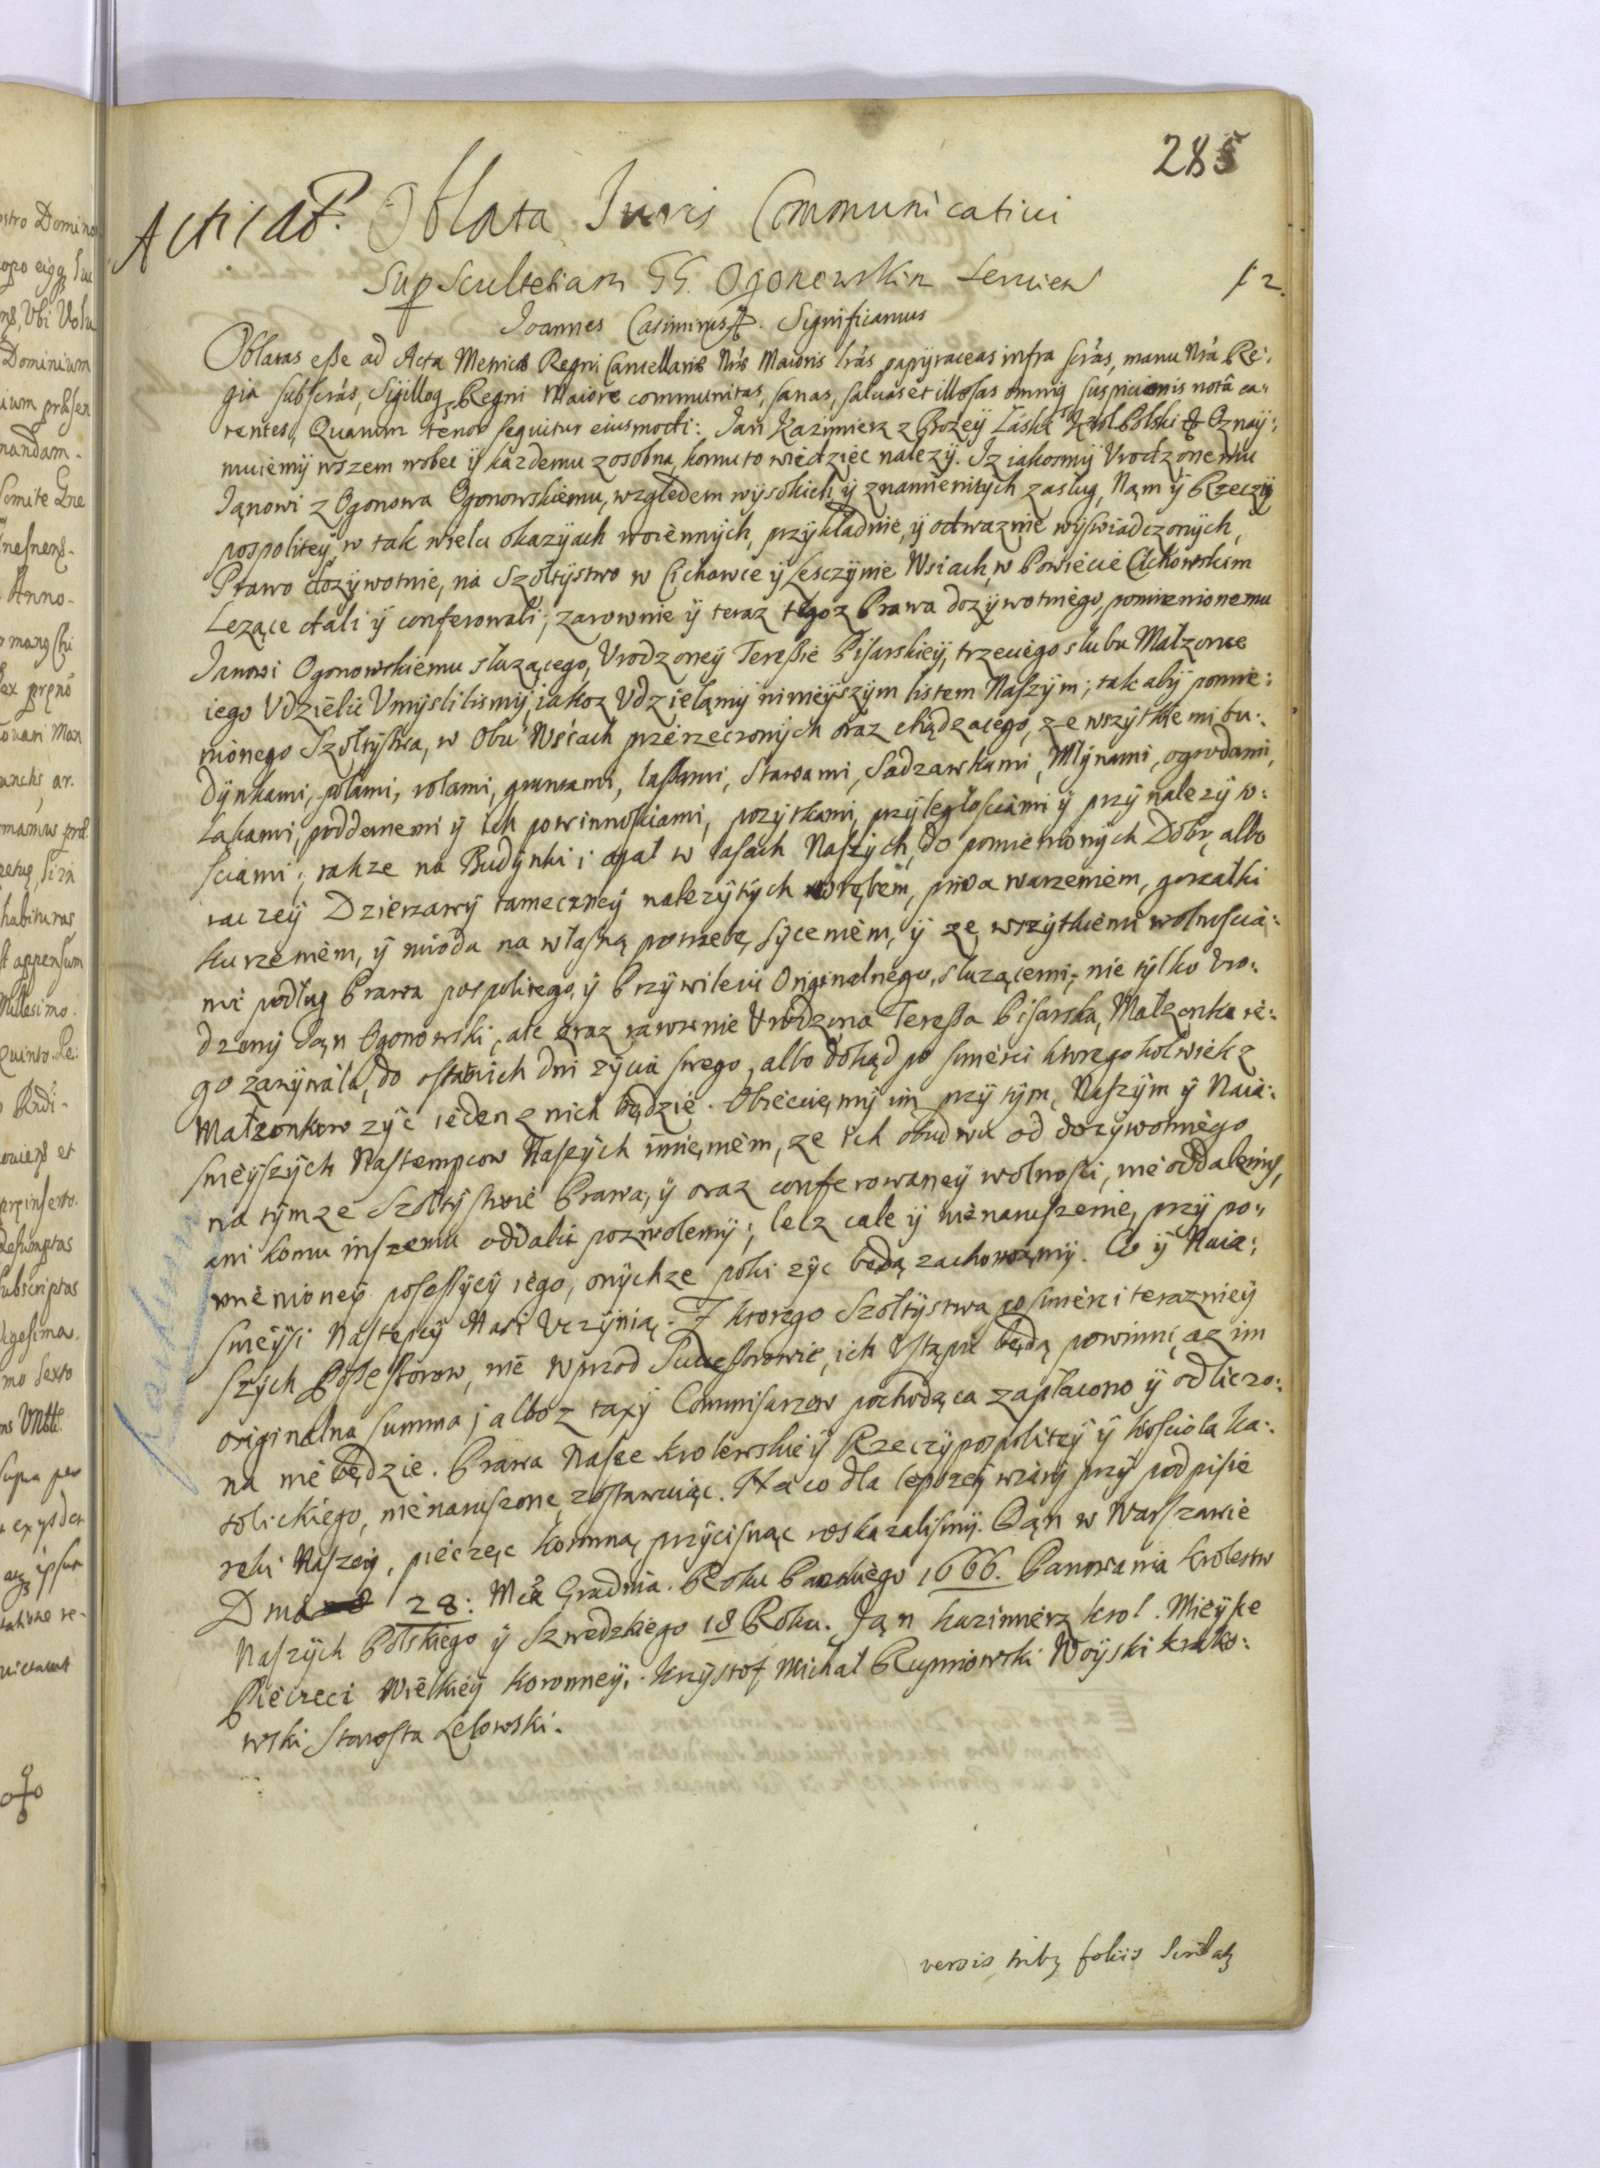 285
Acticat: Oblata Iuris Communicatiui
Sup Scultetiam GG. Ogonowskim seruien
f 2.
Joannes Casimirus R. Significamus
Oblatas eße ad Acta Metrices Regni Cancellariæ Nrãs Maioris lrãs papijraceas infra scrãs, manu Nrã Re:
gia subscrãs, Sigilloq Regni Maiore communitas, sanas, saluas et illæsas omniq suspicionis notâ ca:
rentes, Quarum tenor sequitur eiusmodi: Jan Kazimierz z Bozey Łaski Krol Polski & Oznaÿ:
muiemÿ wszem wobec ÿ kazdemu zosobna, komu to wiedziec nalezÿ. Iz iakosmÿ Vrodzonemu
Janowi z Ogonowa Ogonowskiemu, względem wÿsokich ÿ znamienitych zasług, Nąm ÿ Rzeczÿ
pospoliteÿ, w tak wielu okazÿach woiennÿch, przÿkładnie, ÿ odwaznie wÿswiadczonÿch,
Prawo dozÿwotnie, na Szołtÿstwo w Cichawce ÿ Lesczÿnie Wsiach, w Powiecie Cichowskim
Lezące dali ÿ conferowali; zarownie ÿ teraz tegoz Prawa dozÿwotniego, pomienionemu
Janowi Ogonowskiemu słuzącego, Vrodzoneÿ Tereßie Pisarskieÿ, trzeciego slubu Małzonce
iego Vdzielic Vmÿslilismÿ, iakoz Vdzielamÿ ninieÿszÿm listem Naszÿm; tak abÿ pomie:
nionego Szołtÿstwa, w Obu Wsiach przerzeczonÿch oraz chądzącego, ze wszÿtkiemi bu:
dÿnkami, polami, rolami, gruntami, lassami, Stawami, Sadzawkami, Młÿnami, ogrodami,
Łąkami, poddanemi ÿ ich powinnosciami, pozÿtkami, przÿległosciami ÿ przÿnalezÿto:
sciami; takze na Budÿnki i opał w lasach Naszÿch, do pomienionÿch Dobr, albo
raczeÿ Dzierzawÿ tameczneÿ nalezÿtÿch wrębem, piwa warzeniem, gorzałki
kurzeniem, ÿ miodu na własną potrzebę sÿceniem, ÿ ze wszÿtkiemi wolnoscia:
mi podług Prawa pospolitego, ÿ Przÿwileiu Originalnego, słuzącemi; nie tÿlko Vro:
dzonÿ Jąn Ogonowski, ale oraz zarownie Vrodzona Tereßa Pisarska, Małzonka ie:
go zazÿwała, do ostatnich dni zÿcia swego, albo dokąd po smierci ktoregokolwiek z
Małzonkow zÿc ieden z nich będzie. Obiecuiemÿ im przÿ tÿm, Naszÿm ÿ Naia:
snieÿszÿch Nastempcow Naszÿch imieniem, ze ich obudwu od dozÿwotniego
na tÿmze Szołtÿstwie Prawa, ÿ oraz conferowaneÿ wolnosci, nie oddalemÿ,
ani komu inszemu oddalic pozwolemÿ; lecz cale ÿ nienaruszenie, przÿ po:
mienioneÿ posessÿeÿ iego, onÿchze poki zÿc będą zachowamÿ. Co ÿ Naia:
snieÿsi Nastepcÿ Nasi Vczÿnią. Z ktorego Szołtÿstwa po smierci teraznieÿ
szÿch Poßeßorow, nie wprzod Succeßorowie, ich Vstąpic będą powinni, az im
originalna summa, albo z taxÿ Commisarzow pochodząca zapłacono ÿ odliczo:
na nie będzie. Prawa Nasze krolewskie ÿ Rzeczÿpospoliteÿ ÿ Kosciola ka:
tolickiego, nienaruszone zostawuiąc. Na co dla lepszeÿ wiarÿ przÿ podpisie
reki Naszeÿ, pieczęc koronną przÿcisnąc roskazalismÿ. Dąn w Warszawie
Dnia 28: Mca Grudnia. Roku Panskiego 1666. Panowania krolestw
Naszÿch Polskiego ÿ Szwedzkiego 18 Roku. Jąn Kazimierz krol. Mieÿsce
Pieczeci Wielkieÿ Koronneÿ. Krzÿstof Michał Rupniowski Woÿski krako:
wski Starosta Lelowski.
versis tribq foliis